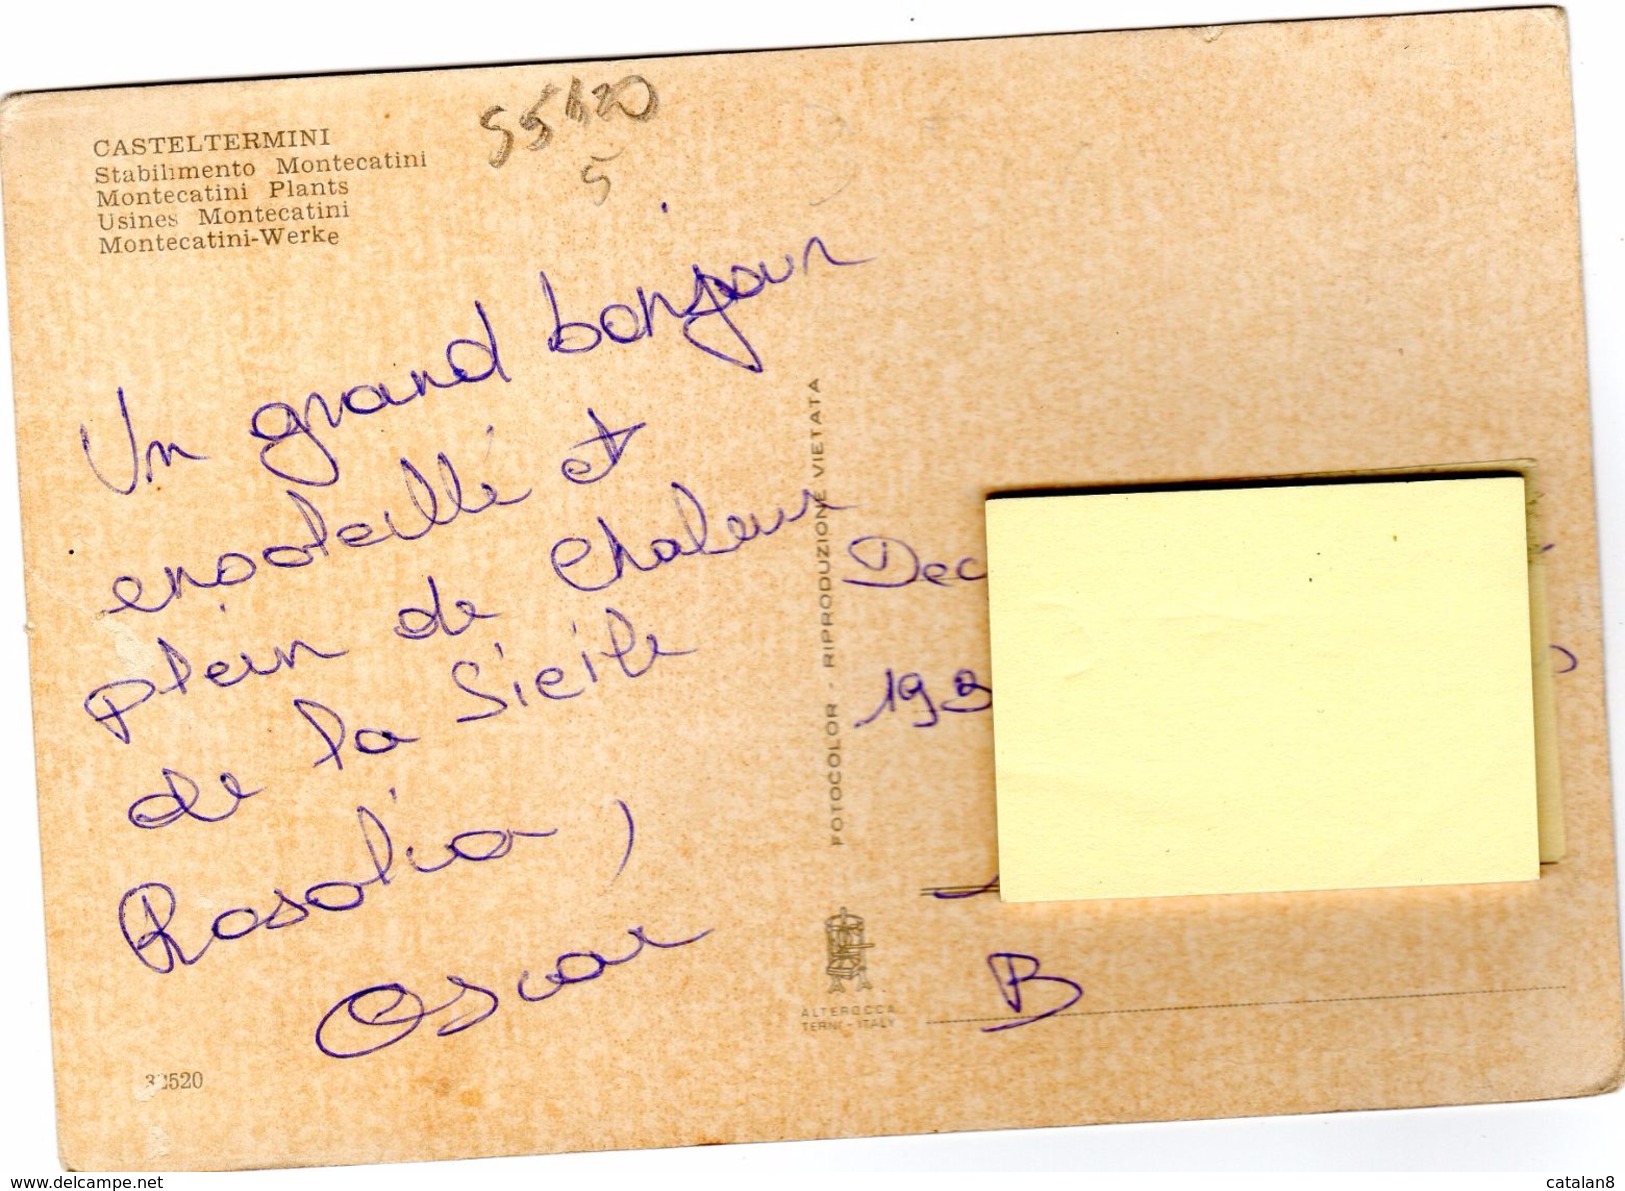 CASTELTERMINI
Stabilimento Montecatini
Montecatini Plants
Usines Montecatini
Montecatini-Werke
5
Un grand bonjour
ensoleillé et
plein de chaleur
de la Sicile
Rosalia,
Oscar
FOTOCOLOR - RIPRODUZIONE VIETATA
ALTEROCCA
TERNI - ITALY
Dec
193
B
www.delcampe.net
catalan8